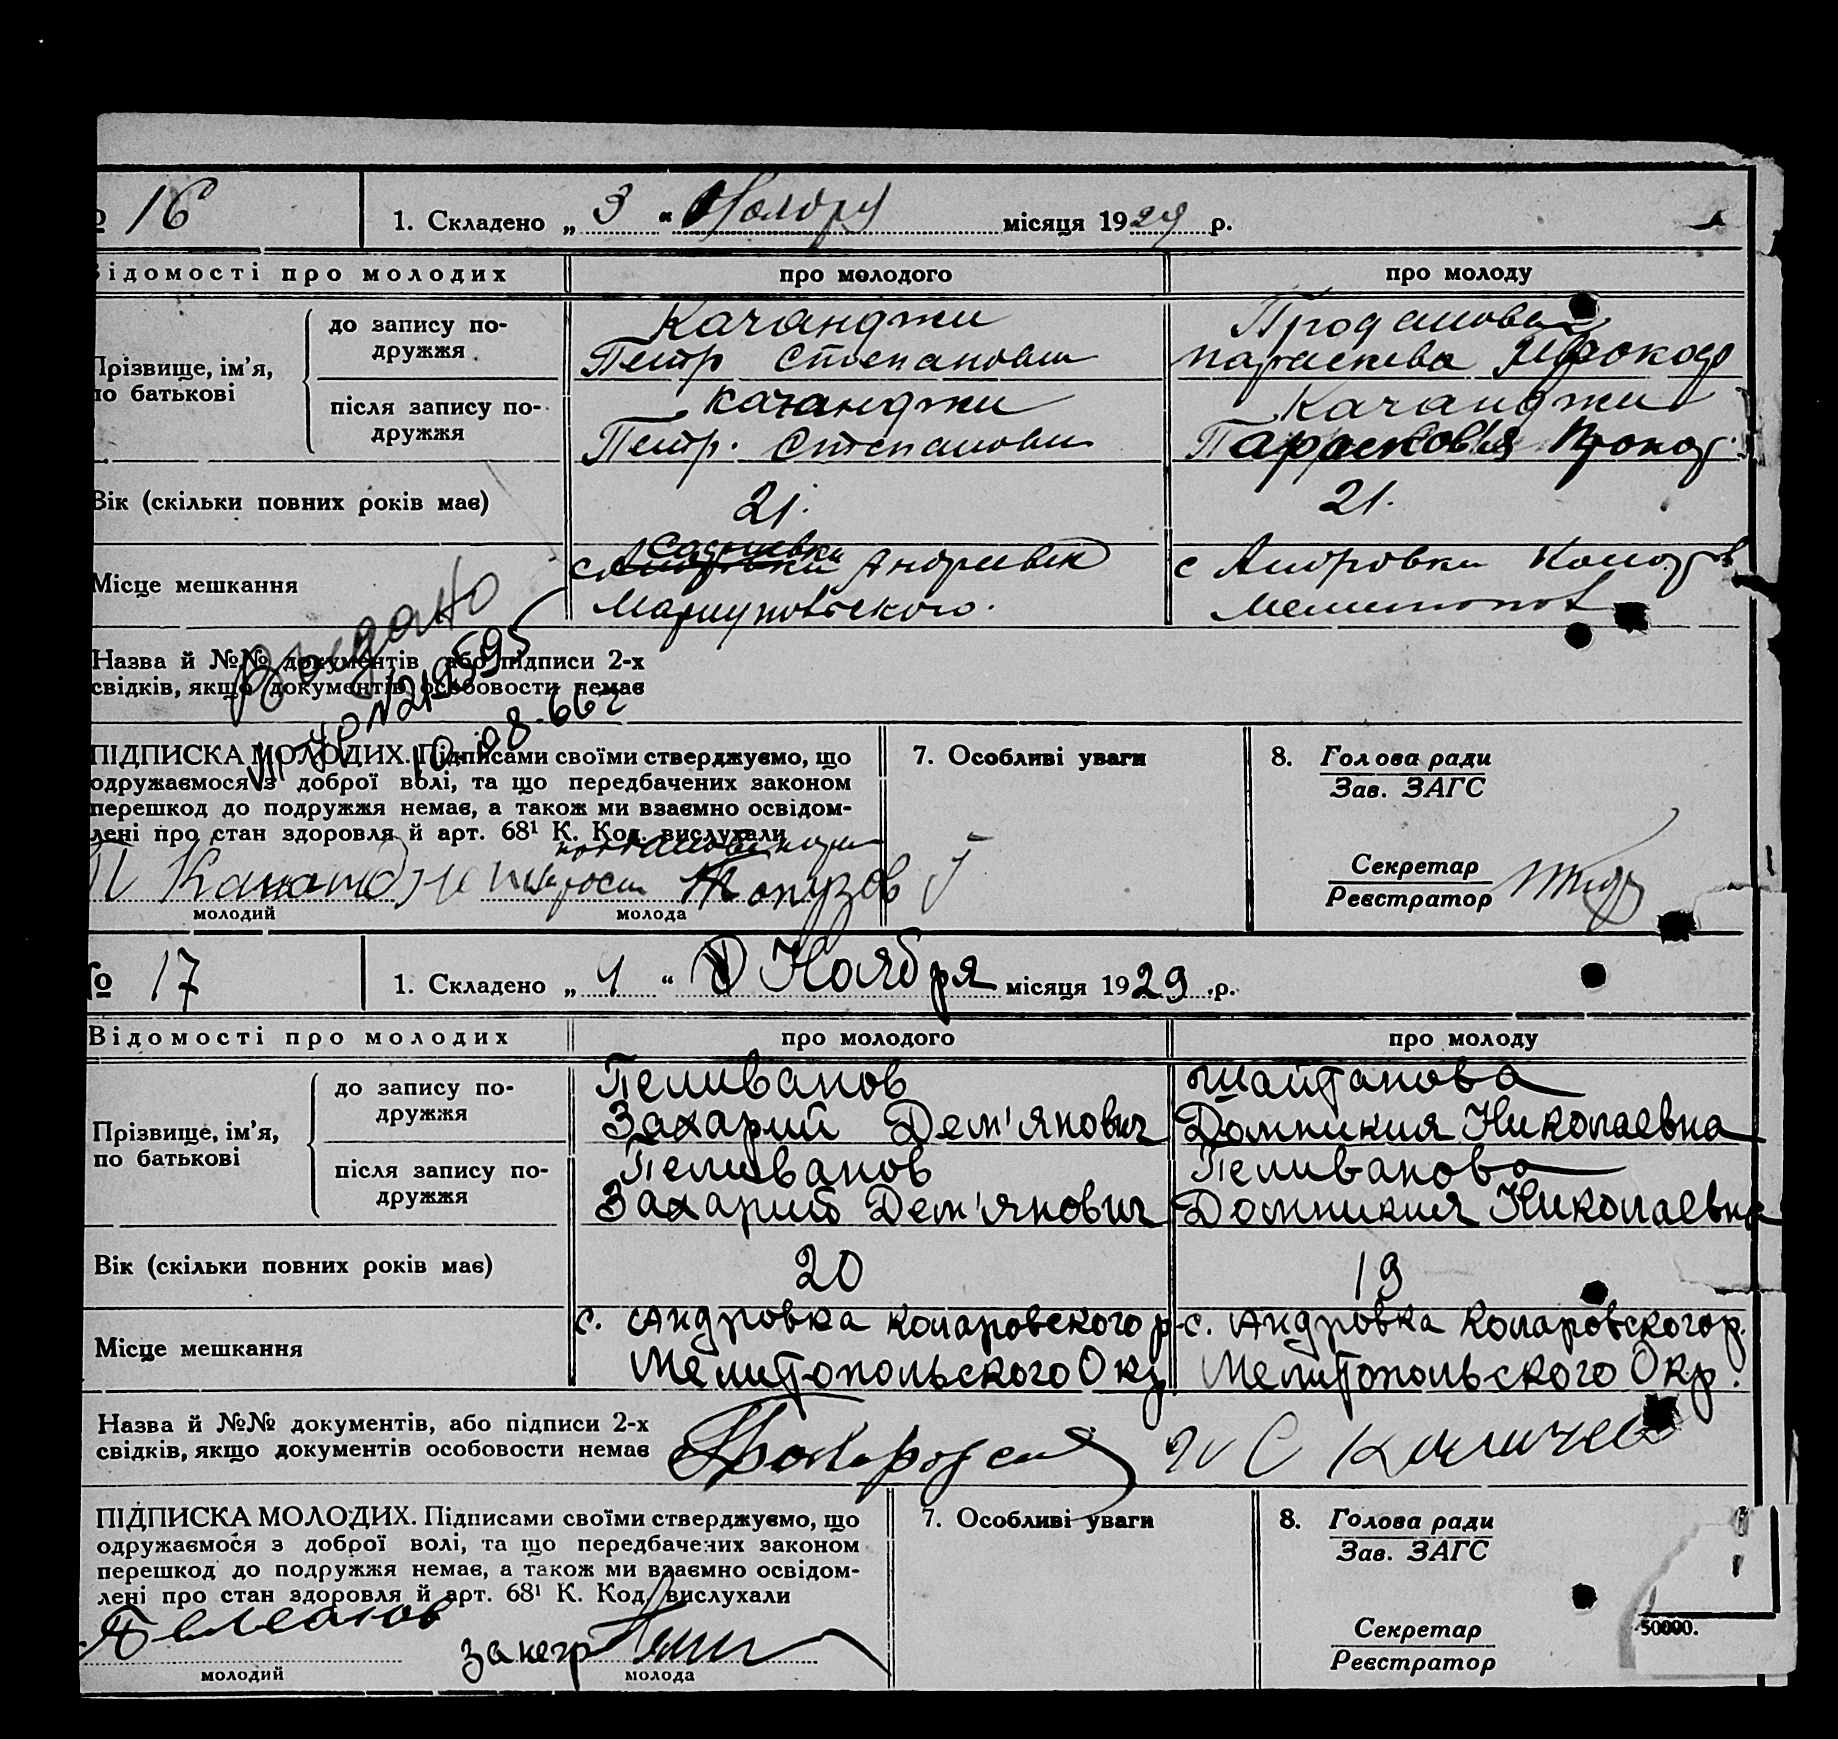 № 16
1. Складено „ 3 “ Ноября місяця 1929 р.
Відомості про молодих про молодого про молоду
Прізвище, ім'я, по батькові
до запису по-
дружжя
Качанджи
Петр Степанови
Проданова
Параскева Прокоф
після запису по-
дружжя
Качанджи
Петр. Степанови
Качанджи
Парасковья Прокоф.
Вік (скільки повних років має) 21. 21.
Місце мешкання
Андриевк
Мариупольского.
с Андровки
Мелитопол
Назва й №№ документів, або підписи 2-х
свідків, якщо документів особовости немає
Выедано
10.08.66г
ПІДПИСКА МОЛОДИХ. Підписами своїми стверджуємо, що
одружаємося з доброї волі, та що передбачених законом
перешкод до подружжя немає, а також ми взаємно освідом-
лені про стан здоровля й арт. 68¹ К. Код. вислухали
Топузов
молодий молода
7. Особливі уваги
8. Голова ради
Зав. ЗАГС
Секретар
Реєстратор
№ 17
1. Складено „ 4 “ Ноября місяця 1929 р.
Відомості про молодих про молодого про молоду
Прізвище, ім'я,
по батькові
до запису по-
дружжя
Пеливанов
Захарий Дем'янович
Шайтанова
Домникия Николаевна
після запису по-
дружжя
Пеливанов
Захарий Дем'янович
Пеливанова
Домникия Николаевна
Вік (скільки повних років має) 20 19
Місце мешкання
с. Андровка Коларовского р
Мелитопольского Окр
с. Андровка Коларовского р.
Мелитопольского Окр.
Назва й №№ документів, або підписи 2-х
свідків, якщо документів особовости немає
ПІДПИСКА МОЛОДИХ. Підписами своїми стверджуємо, що
одружаємося з доброї волі, та що передбачених законом
перешкод до подружжя немає, а також ми взаємно освідом-
лені про стан здоровля й арт. 68¹ К. Код. вислухали
за негр
молодий молода
7. Особливі уваги
8. Голова ради
Зав. ЗАГС
Секретар
Реєстратор
50000.